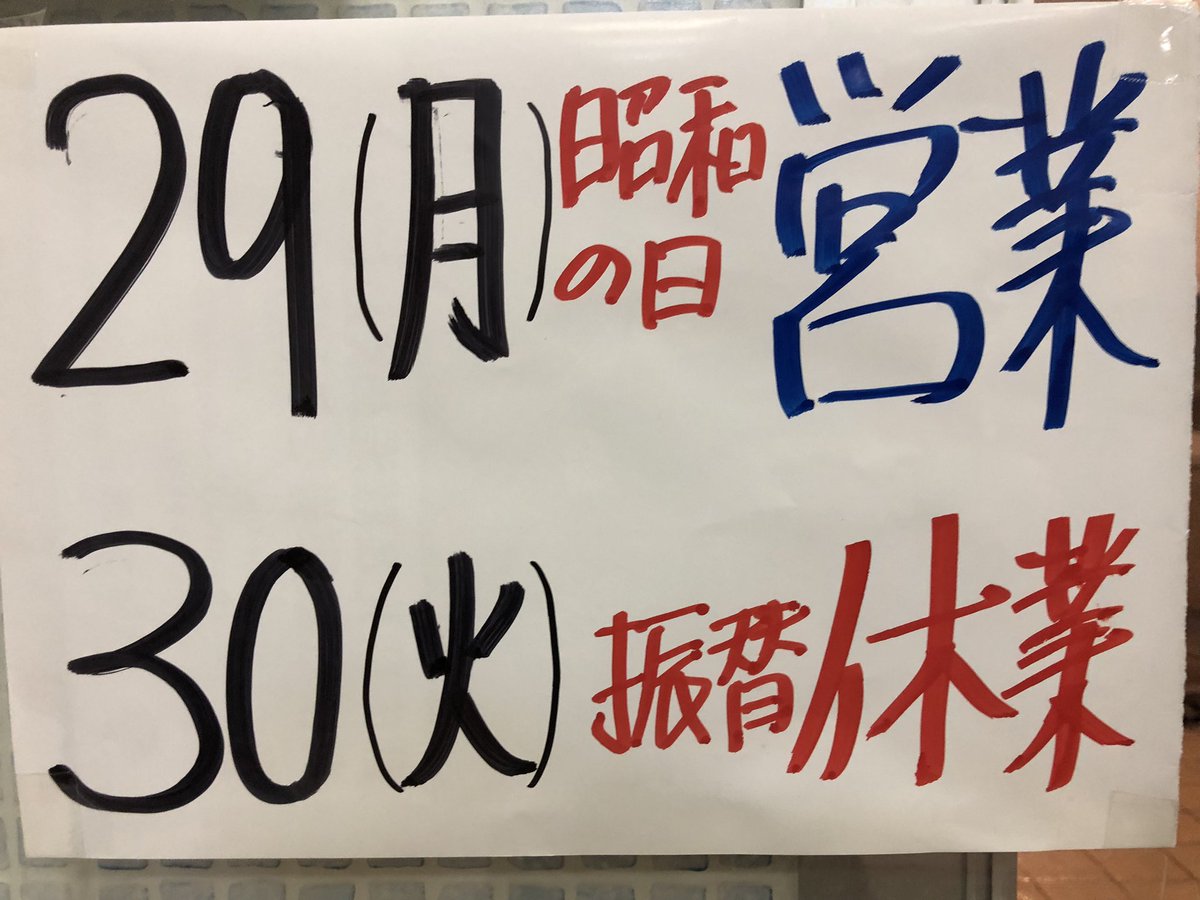 29(月)昭和の日 営業
30(火)振替休業